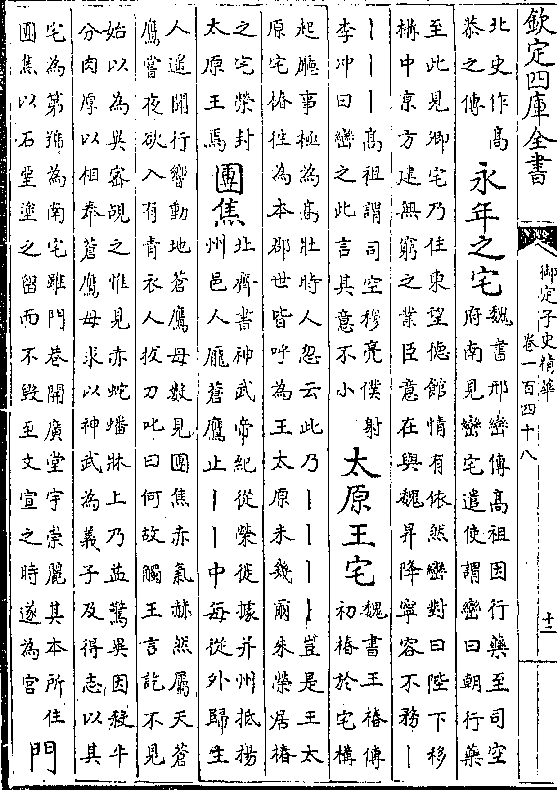 欽定四庫全書
御定子史精華
卷一百四十八
十一
北史作高
恭之傳
永年之宅
魏書邢巒傳高祖因行藥至司空
府南見巒宅遣使謂巒曰朝行藥
至此見卿宅乃住東望德館情有依然巒對曰陛下移
構中京方建無窮之業臣意在與魏昇降寧容不務丨
丨丨丨高祖謂司空穆亮僕射
李沖曰巒之此言其意不小
太原王宅
魏書王椿傳
初椿於宅構
起廳事極為高壯時人忽云此乃丨丨丨丨豈是王太
原宅椿往為本郡世皆呼為王太原未幾爾朱榮居椿
之宅榮封
太原王焉
團焦
北齊書神武帝紀從榮徙據并州抵揚
州邑人龐蒼鷹止丨丨中每從外歸主
人遥聞行響動地蒼鷹母數見團焦赤氣赫然屬天蒼
鷹嘗夜欲入有青衣人拔刀叱曰何故觸王言訖不見
始以為異密覘之惟見赤蛇蟠牀上乃益驚異因殺牛
分肉厚以相奉蒼鷹母求以神武為義子及得志以其
宅為第號為南宅雖門巷開廣堂宇崇麗其本所住
團焦以石堊塗之留而不毀至文宣之時遂為宮
門